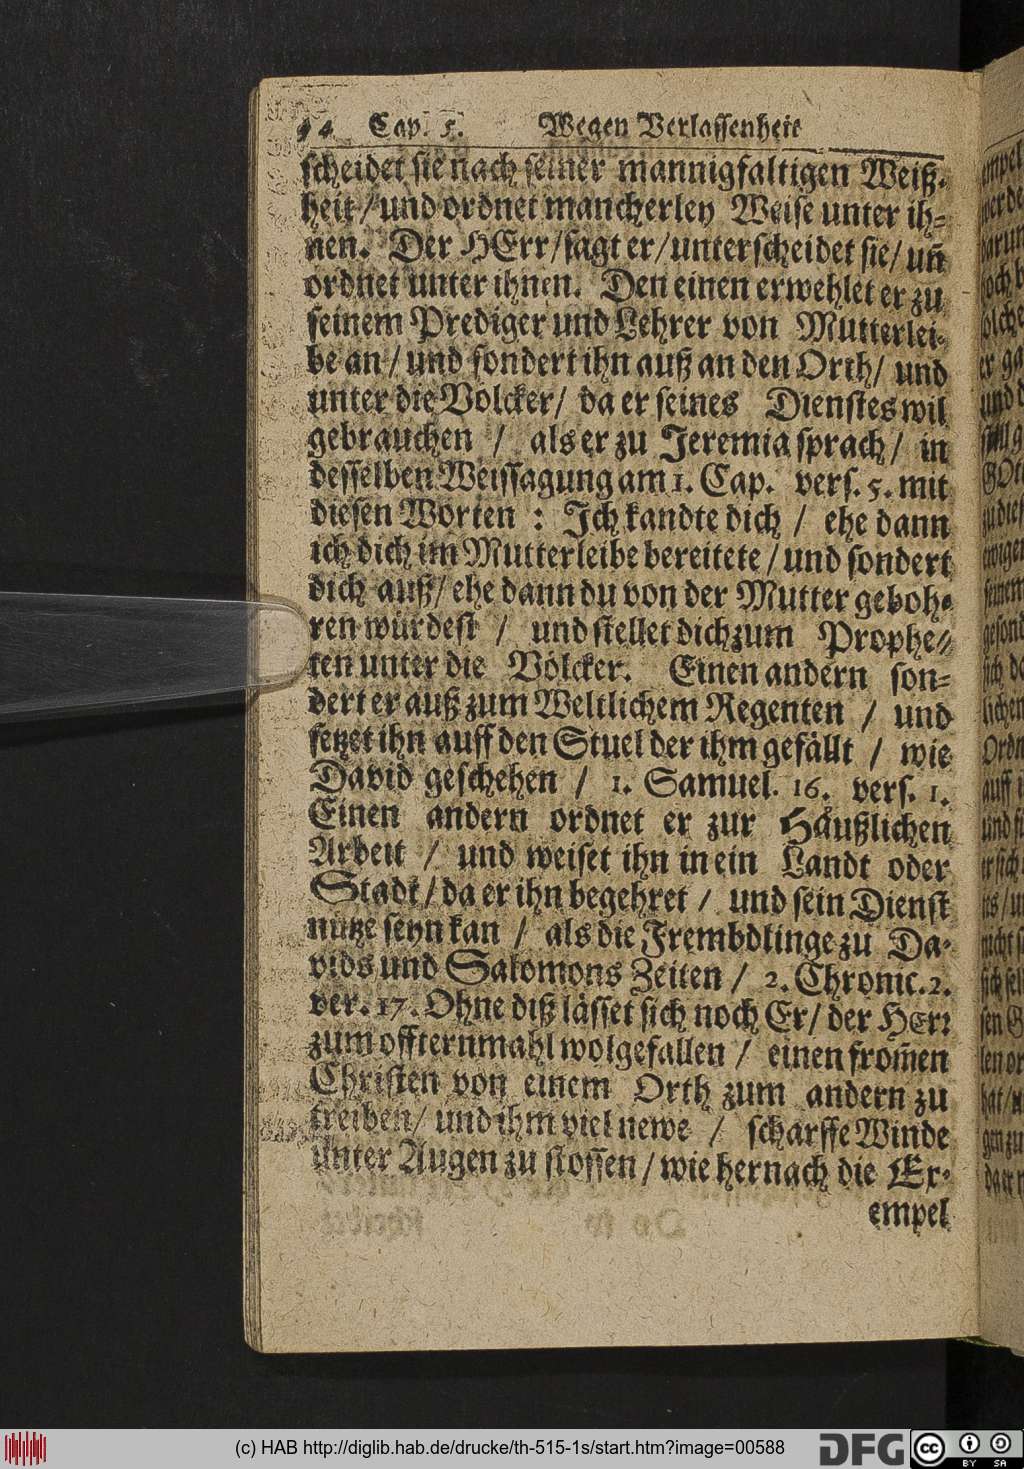 94 Cap. 5. Wegen Verlassenheit
scheidet sie nach seiner mannigfaltigen Weiß-
heit / und ordnet mancherley Weise unter ih-
nen. Der HErr / sagt er / unterscheidet sie / uñ
ordnet unter ihnen. Den einen erwehlet er zu
seinem Prediger und Lehrer von Mutterlei-
be an / und sondert ihn auß an den Orth / und
unter die Völcker / da er seines Dienstes wil
gebrauchen / als er zu Jeremia sprach / in
desselben Weissagung am 1. Cap. vers. 5. mit
diesen Worten : Ich kandte dich / ehe dann
ich dich im Mutterleibe bereitete / und sondert
dich auß / ehe dann du von der Mutter geboh-
ren würdest / und stellet dich zum Prophe-
ten unter die Völcker. Einen andern son-
dert er auß zum Weltlichem Regenten / und
setzet ihn auff den Stuel der ihm gefällt / wie
David geschehen / 1. Samuel. 16. vers. 1.
Einen andern ordnet er zur Häußlichen
Arbeit / und weiset ihn in ein Landt oder
Stadt / da er ihn begehret / und sein Dienst
nütze seyn kan / als die Frembdlinge zu Da-
vids und Salomons Zeiten / 2. Chronic. 2.
ver. 17. Ohne diß lässet sich noch Er / der HErr
zum offternmahl wolgefallen / einen from̃en
Christen von einem Orth zum andern zu
treiben / und ihm viel newe / scharffe Winde
unter Augen zu stossen / wie hernach die Ex-
empel
(c) HAB http://diglib.hab.de/drucke/th-515-1s/start.htm?image=00588
DFG
cc
BY SA